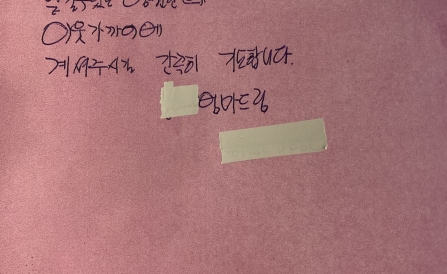 이웃가까이에
계셔주시길 간곡히 기도합니다.
엄마드림